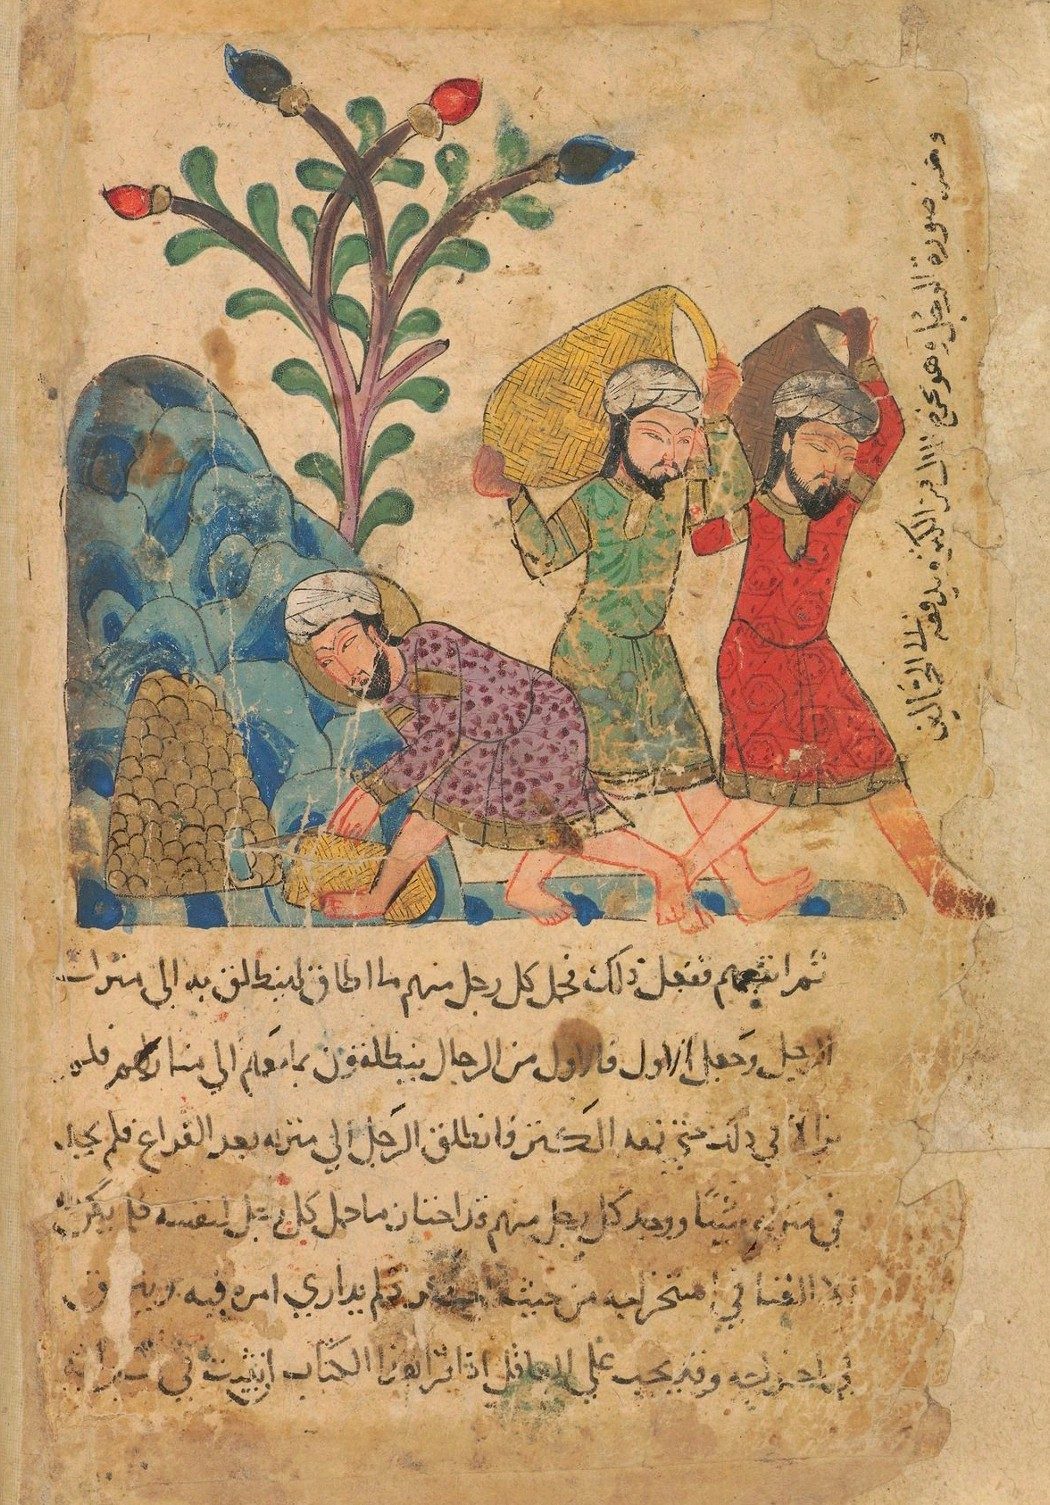 وهذه صورة الرجل وهو يخرج المال من الكنز ويدفعه الى الحمالين
ثم انتهم ففعل ذلك فحمل كل رجل منهم ما اطاق لينطلق به الى منزل
الرجل وجعل الاول فالاول من الرجال ينطلقون بما معهم الي منازلهم فلم
يزالوا في ذلك حتى نفد الكنز فانطلق الرجل الي منزله بعد الفراغ فلم يجد
في منزله شيئا ووجد كل رجل منهم قد احتاز ما حمل كل رجل لنفسه فلم يكن
في استخراجه من حيث لم يداري امره فيه
وقد يجب علي العاقل اذا قرا هذا الكتاب ان يثبت في